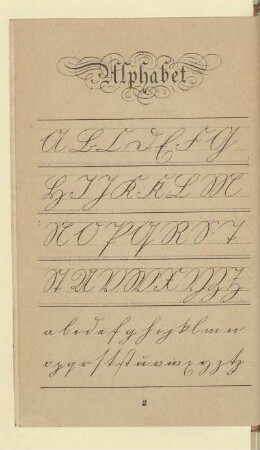 Alphabet
A B C D E F G
H I J K K L M
N O P Q R S T
St U V W X Y Z
a b c d e f g h i j k l m n
o p q r s t st u v w x y z tz
2